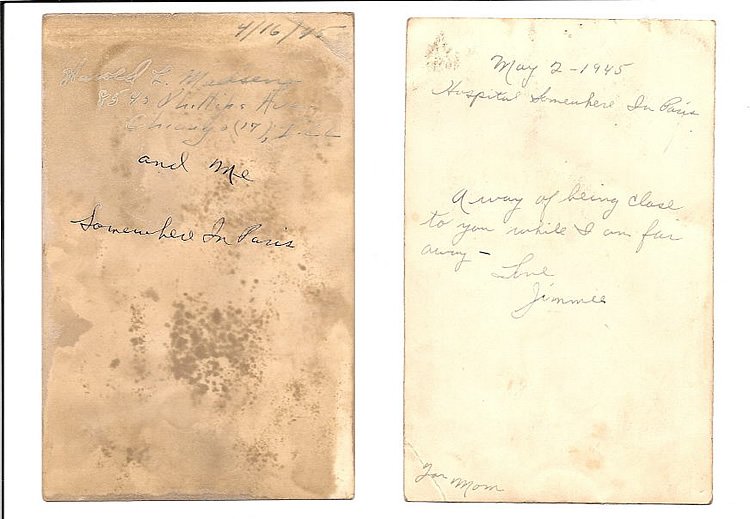 4/16/45
Harold L.
8545 Phillips Ave.
Chicago (17), Ill
and Me
Somewhere In Paris
May 2-1945
Hospital Somewhere In Paris
A way of being close
to you while I am far
away -
Love
Jimmee
For Mom